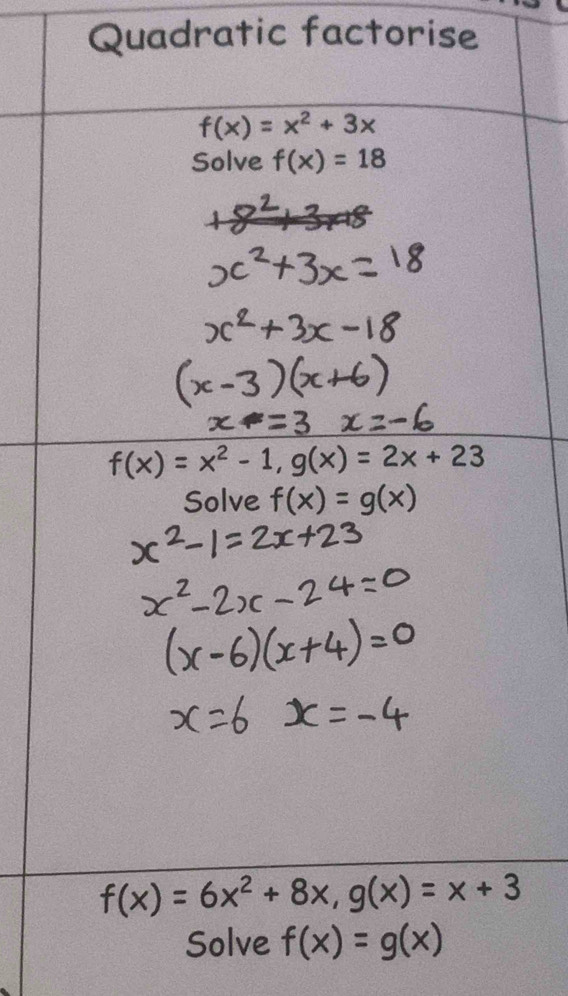 Quadratic factorise
f(x) = x² + 3x
Solve f(x) = 18
x² + 3x = 18
x² + 3x - 18
(x - 3)(x + 6)
x = 3 x = -6
f(x) = x² - 1, g(x) = 2x + 23
Solve f(x) = g(x)
x² - 1 = 2x + 23
x² - 2x - 24 = 0
(x - 6)(x + 4) = 0
x = 6 x = -4
f(x) = 6x² + 8x, g(x) = x + 3
Solve f(x) = g(x)